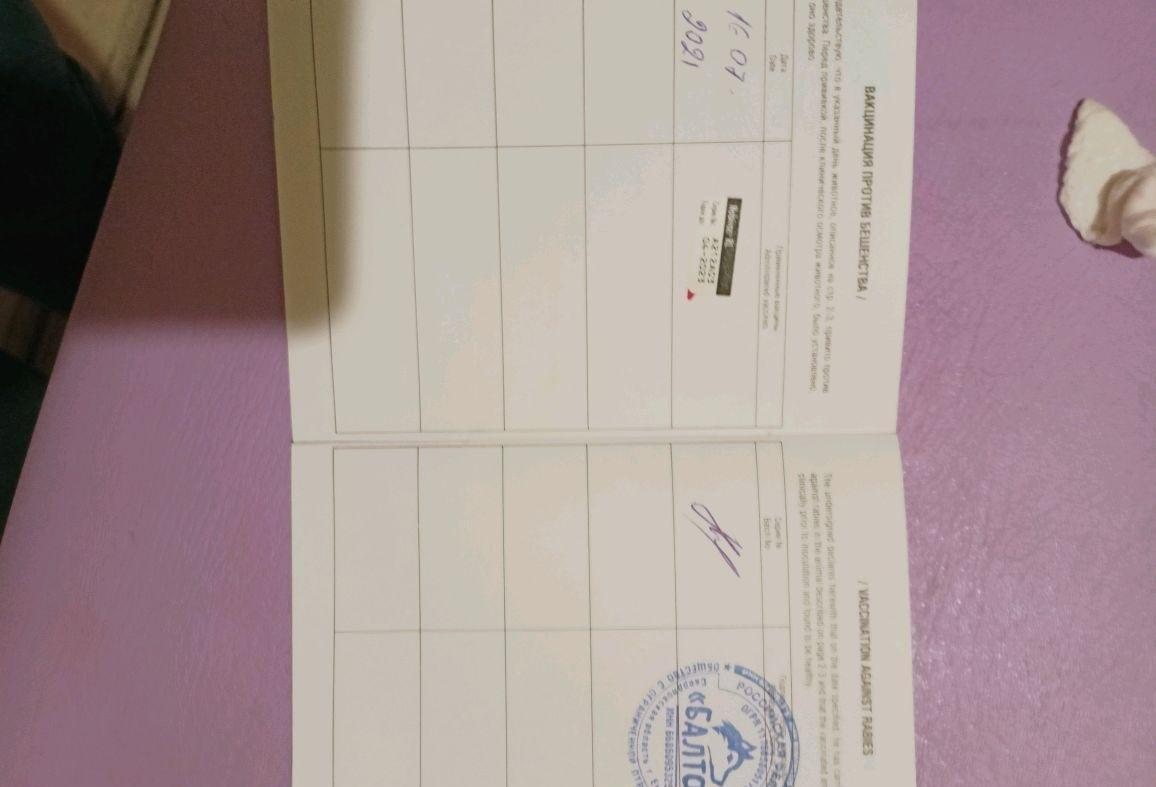 ВАКЦИНАЦИЯ ПРОТИВ БЕШЕНСТВА /
что в указанный день животное, описанное на стр. 2-3, привито против
Перед прививкой, после клинического осмотра животного, было установлено,
оно здорово.
Дата
Date
Примененные вакцины
Administrated vaccines
16 07.
2021
04-2023
/ VACCINATION AGAINST RABIES
The undersigned declares herewith that on the date specified, he has
against rabies in the animal described on page 2-3 and that the vaccinated
clinically prior to inoculation and found to be healthy.
Серия №
Batch No
РОССИЙСКАЯ
ОБЩЕСТВО С ОГРАНИЧЕННОЙ
Свердловская область г.
«БАЛТО